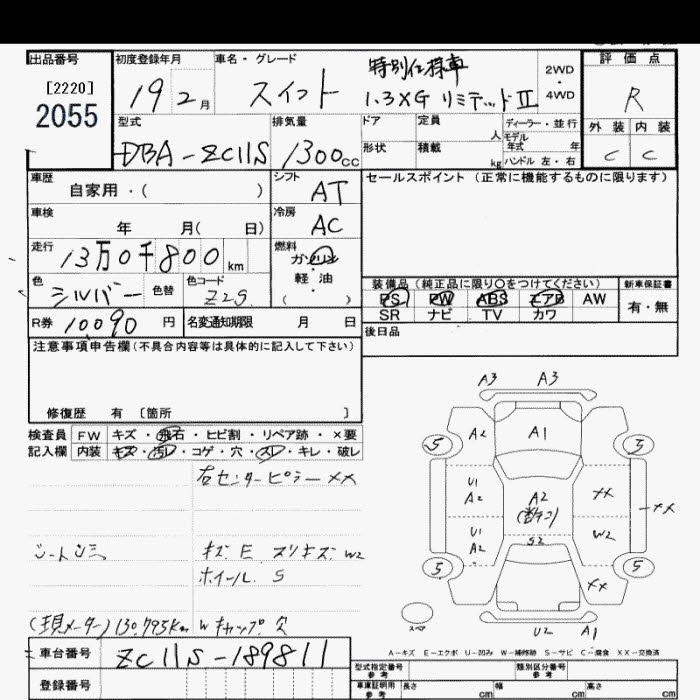 出品番号
[2220]
2055
初度登録年月
19 2月
車名・グレード
特別仕様車
スイフト 1.3XG リミテッドⅡ
2WD
4WD
評価点
R
外装 内装
C C
型式
DBA-ZC11S
排気量
1300cc
ドア 定員 人
形状 積載 kg
ディーラー・並行
モデル年式 年
ハンドル 左・右
車歴
自家用・( )
シフト
AT
セールスポイント (正常に機能するものに限ります)
車検
年 月( 日)
冷房
AC
走行
13万0千800km
燃料
ガソリン
軽油
( )
色
シルバー
色替
色コード
Z2S
装備品 (純正品に限り○をつけてください)
PS PW ABS エアB AW
SR ナビ TV カワ
新車保証書
有・無
R券 10090円
名変通知期限 月 日
後日品
注意事項申告欄(不具合内容等は具体的に記入して下さい)
修復歴 有 〔箇所 〕
検査員
記入欄
FW キズ・飛石・ヒビ割・リペア跡・×要
内装 キズ・汚レ・コゲ・穴・スレ・キレ・破レ
右センターピラーXX
シートシミ
キズ E スリキズ W2
ホイール S
(現メーター)130.793Km Wキャップ欠
A3 A3
A2 A1
5 5
U1
A2
A2
XX
XX
U1
A2
S2
W2
5 5
XX
スペア
U2 A1
A-キズ E-エクボ U-凹み W-補修跡 S-サビ C-腐食 XX-交換済
車台番号
ZC11S-189811
登録番号
型式指定番号
参考
類別区分番号
参考
車庫証明用
参考
長さ cm
幅 cm
高さ cm